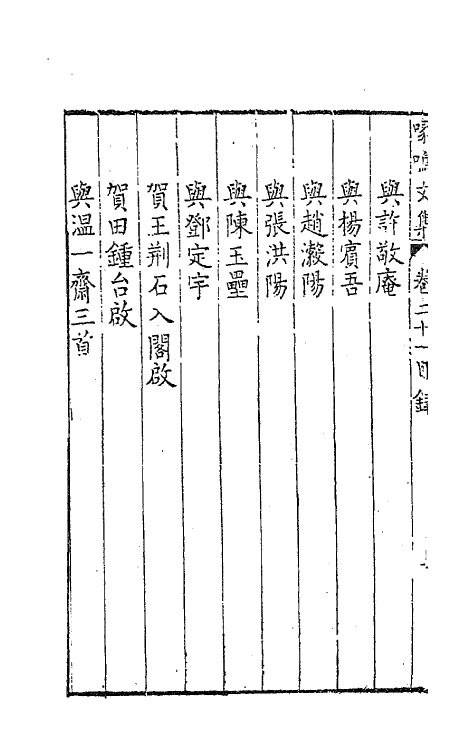 喙鳴文集 卷二十一目錄
與許敬庵
與楊賔吾
與趙瀫陽
與張洪陽
與陳玉壘
與鄧定宇
賀王荆石入閣啟
賀田鍾台啟
與温一齋三首